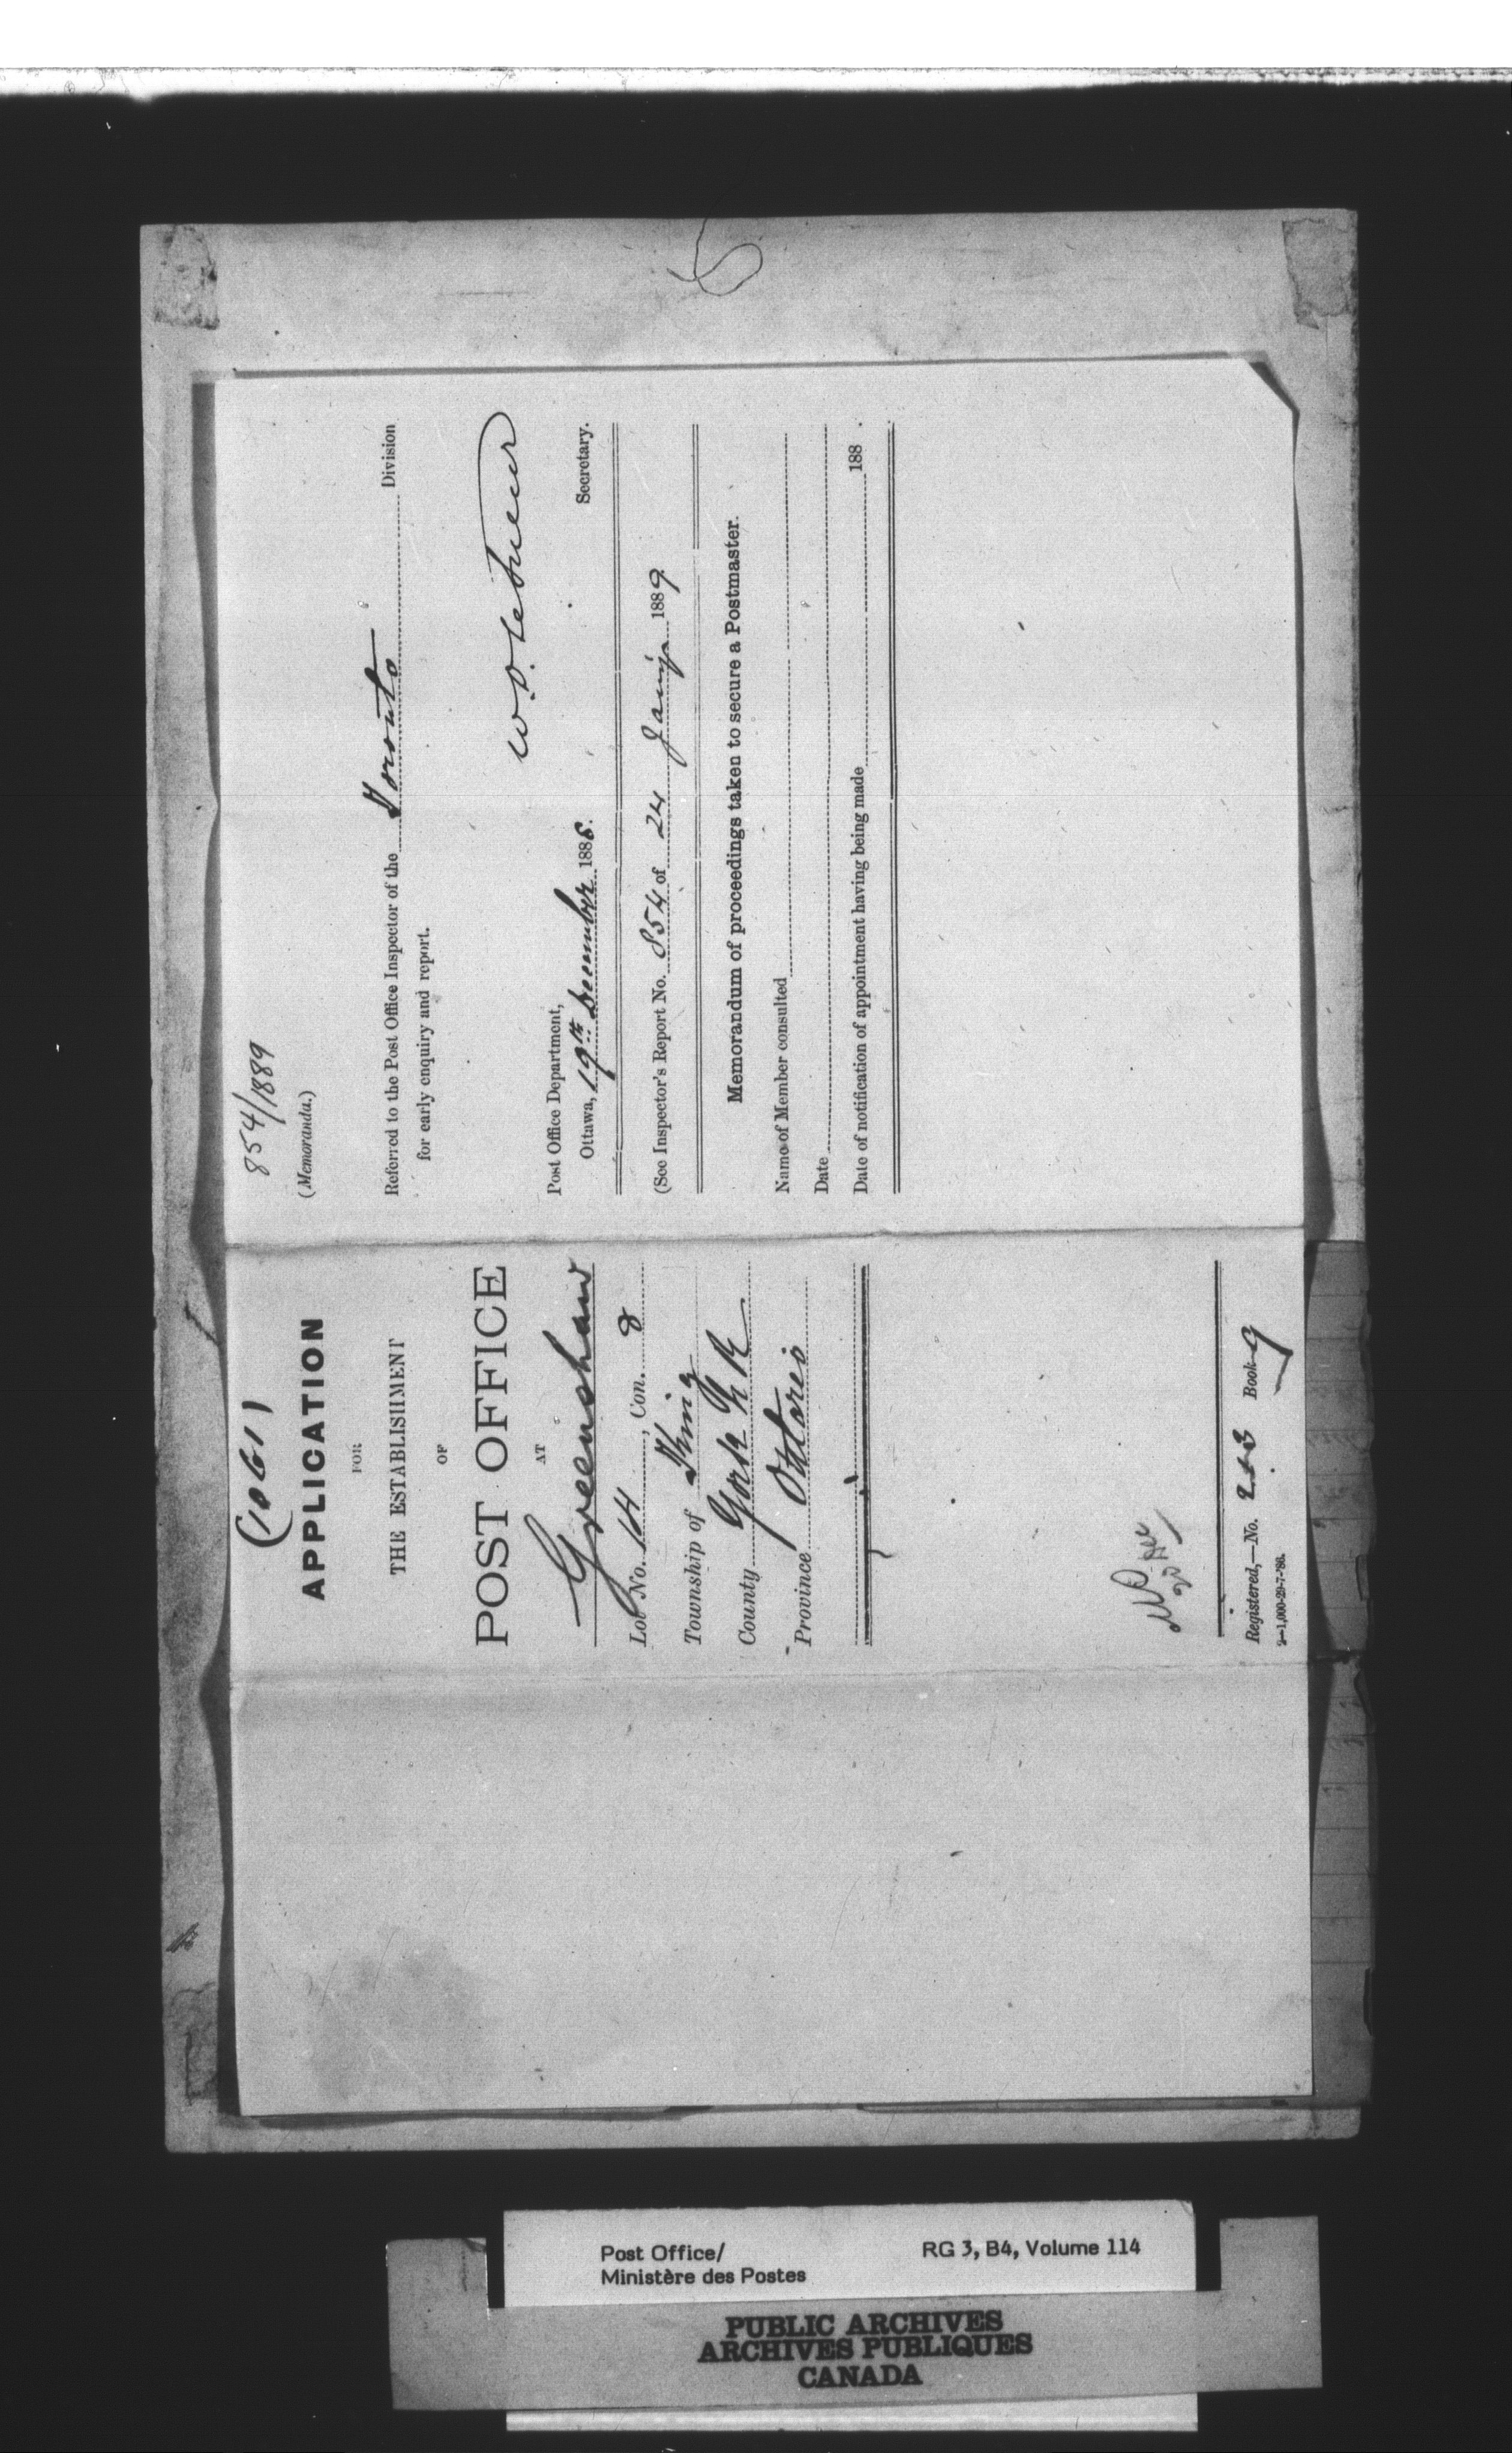 (1061)
APPLICATION
FOR
THE ESTABLISHMENT
OF
POST OFFICE
AT
Greenshaw
Lot No. 14, Con. 8
Township of King
County York N R
Province Ontario
Registered,—No. 213 Book 9
2—1,000-29-7-'86.
854/1889
(Memoranda.)
Referred to the Post Office Inspector of the Toronto Division
for early enquiry and report.
Post Office Department,
Ottawa, 19th December 1888.
Secretary.
(See Inspector's Report No. 854 of 24 Jany 1889
Memorandum of proceedings taken to secure a Postmaster.
Name of Member consulted
Date
Date of notification of appointment having being made 188 .
Post Office/
Ministère des Postes
RG 3, B4, Volume 114
PUBLIC ARCHIVES
ARCHIVES PUBLIQUES
CANADA